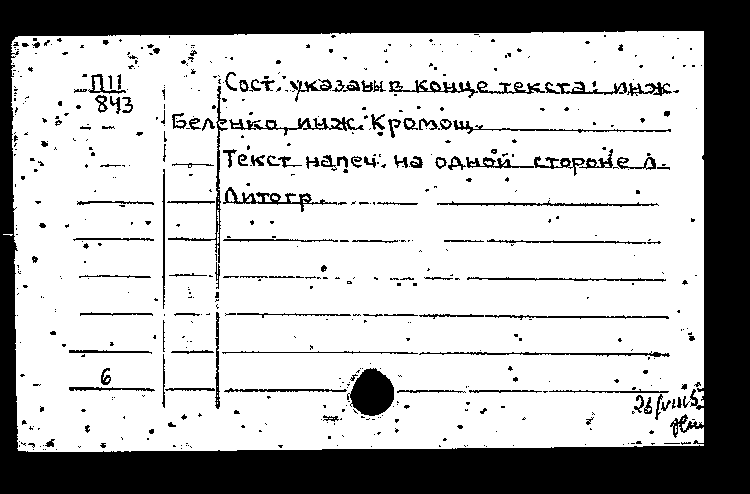 П11
843
Сост. указаны в конце текста: инж.
Беленко, инж. Кромощ.
Текст напеч. на одной стороне л.
Литогр.
6
26/VIII5